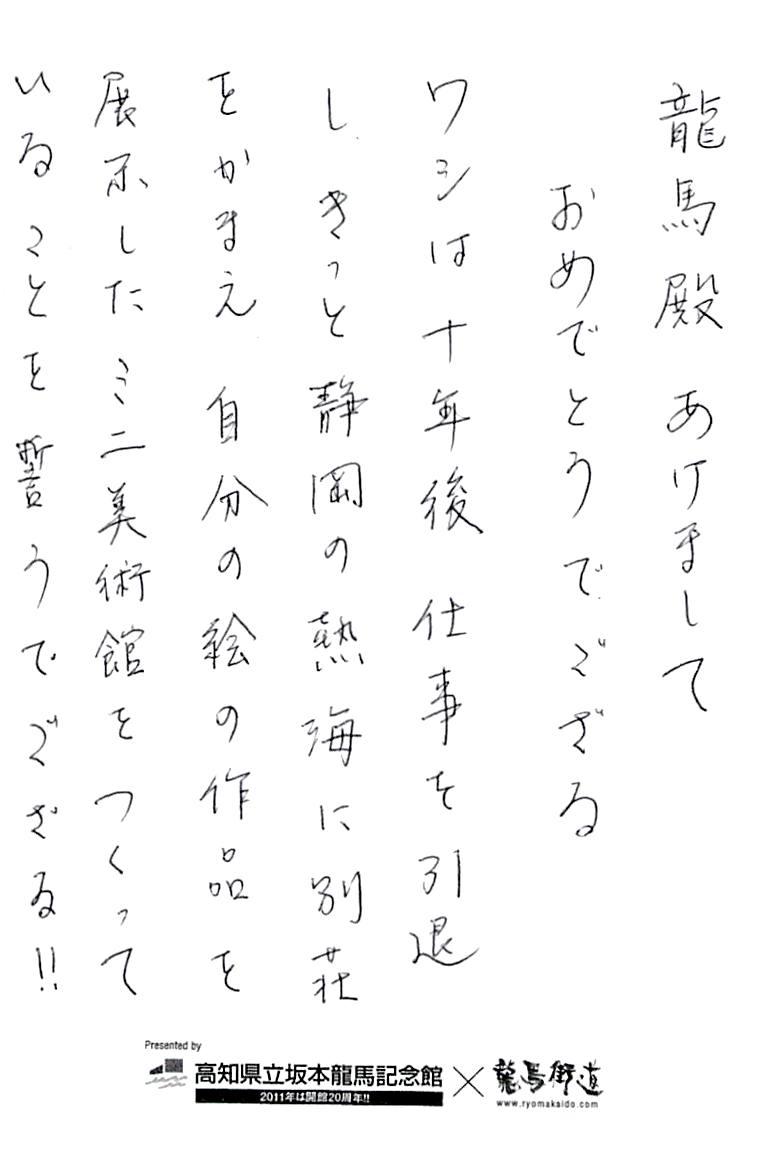 龍馬殿 あけまして
おめでとうでござる
ワシは十年後 仕事を引退
し きっと静岡の熱海に別荘
をかまえ 自分の絵の作品を
展示したミニ美術館をつくって
いることを誓うでござる!!
Presented by
高知県立坂本龍馬記念館 × 龍馬街道
2011年は開館20周年!!
www.ryomakaido.com